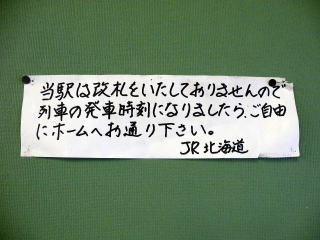 当駅は改札をいたしておりませんので
列車の発車時刻になりましたら、ご自由
にホームへお通り下さい。
JR北海道